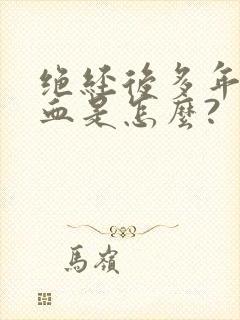 绝经後多年
血是怎麽？
馬嶺